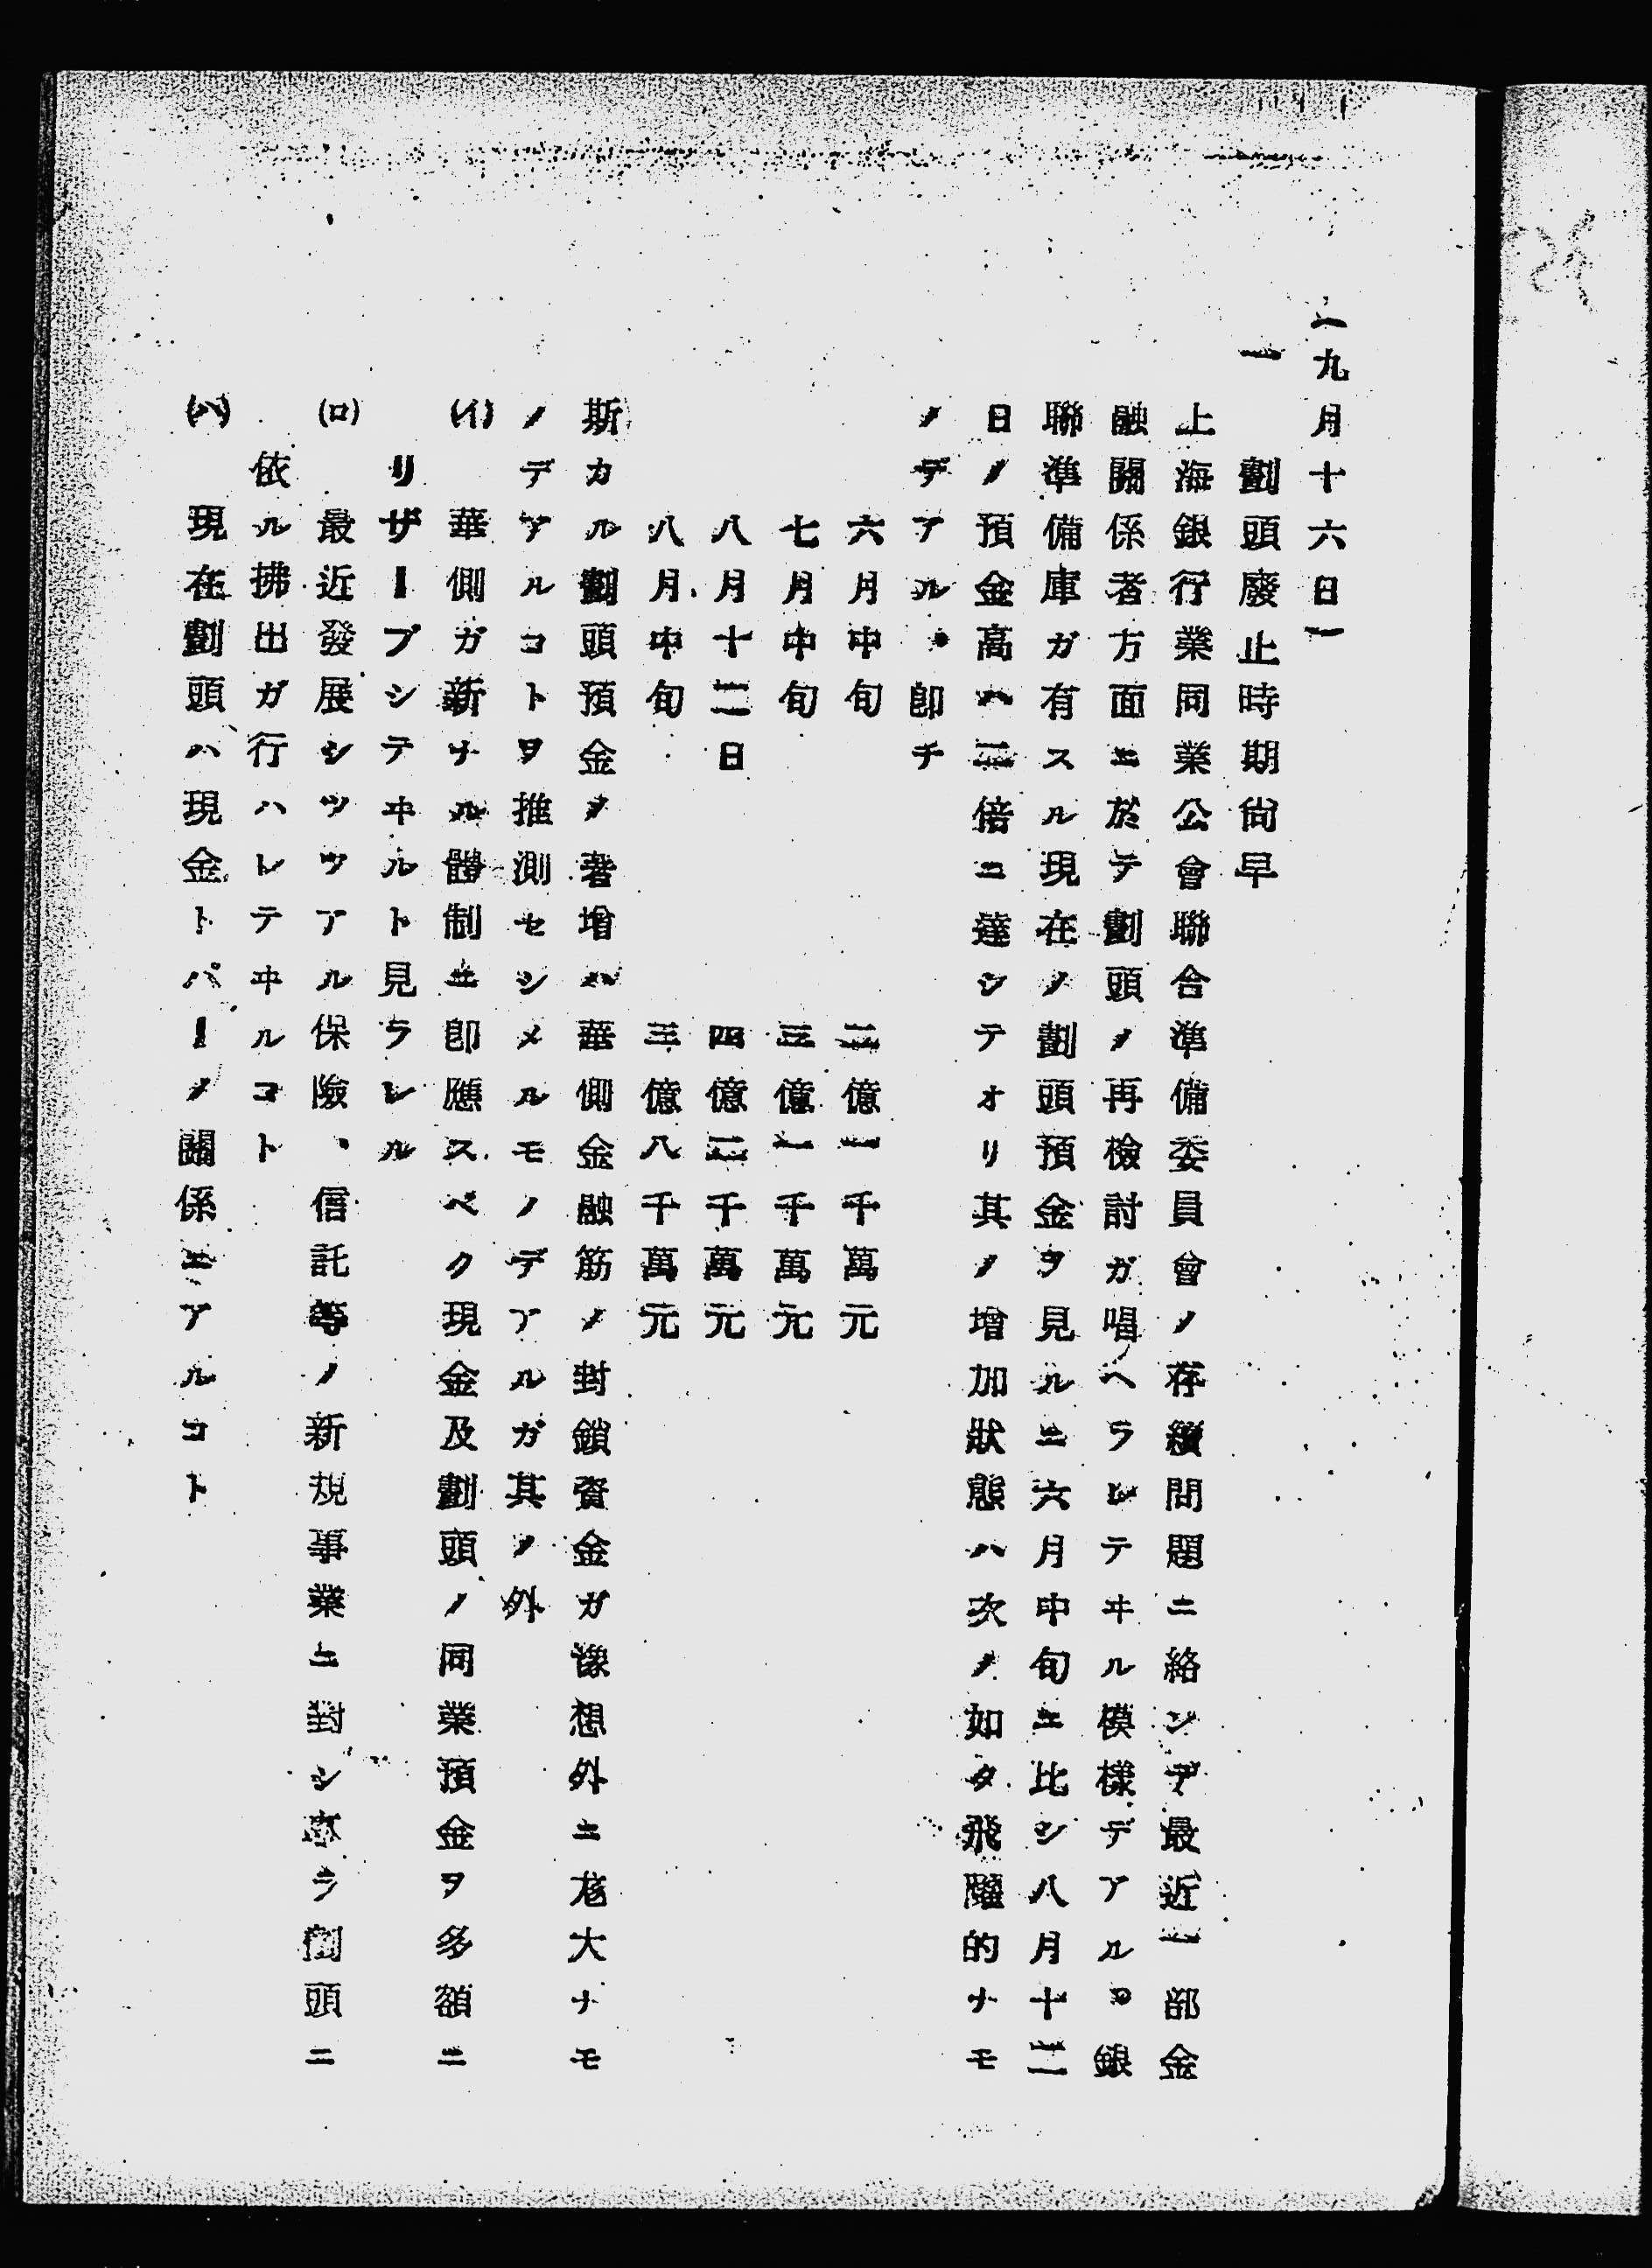 (九月十六日)
一 劃頭廢止時期尙早
上海銀行業同業公會聯合準備委員會ノ存續問題ニ絡ンデ最近一部金
融關係者方面ニ於テ劃頭ノ再檢討ガ唱ヘラレテヰル模樣デアル。銀
聯準備庫ガ有スル現在ノ劃頭預金ヲ見ルニ六月中旬ニ比シ八月十二
日ノ預金高ハ二倍ニ達シテオリ其ノ增加狀態ハ次ノ如ク飛躍的ナモ
ノデアル。卽チ
六月中旬 二億一千萬元
七月中旬 三億一千萬元
八月十二日 四億二千萬元
八月中旬 三億八千萬元
斯カル劃頭預金ノ著增ハ華側金融筋ノ封鎖資金ガ豫想外ニ尨大ナモ
ノデアルコトヲ推測セシメルモノデアルガ其ノ外
(イ) 華側ガ新ナル體制ニ卽應スベク現金及劃頭ノ同業預金ヲ多額ニ
リザーブシテヰルト見ラレル
(ロ) 最近發展シツツアル保險、信託等ノ新規事業ニ對シ專ラ劃頭ニ
依ル拂出ガ行ハレテヰルコト
(ハ) 現在劃頭ハ現金トパーノ關係ニアルコト